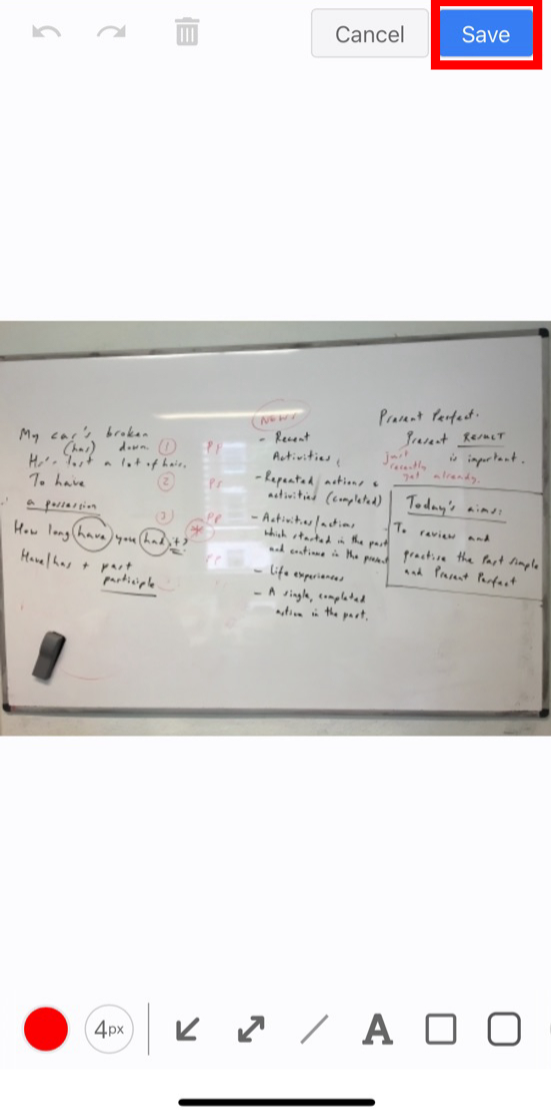 Cancel
Save
My car's broken
(has) down. ①
He's lost a lot of hair.
To have ②
a possession
③
How long have you had it?
Have/has + past
participle
PP
PS
PP
PP
*
News
- Recent
Activities
- Repeated actions &
activities (completed)
- Activities/actions
which started in the past
and continue in the present
- Life experiences
- A single, completed
action in the past.
Present Perfect.
Present RESULT
is important.
just
recently
yet already.
Today's aims:
To review and
practise the Past Simple
and Present Perfect
4px
A